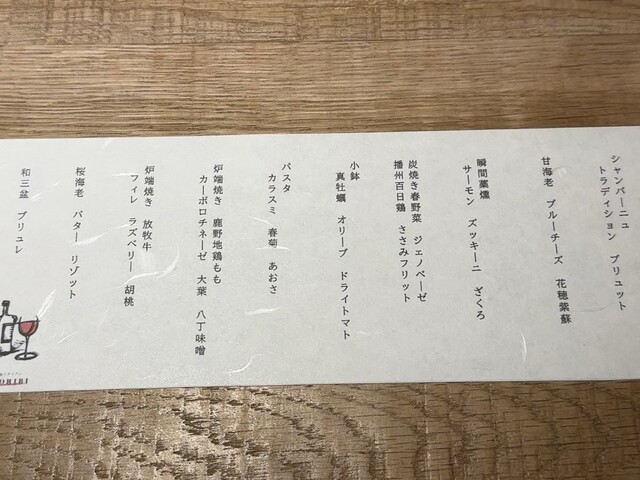 シャンパーニュ
トラディション ブリュット
甘海老 ブルーチーズ 花穂紫蘇
瞬間藁燻
サーモン ズッキーニ ざくろ
炭焼き春野菜 ジェノベーゼ
播州百日鶏 ささみフリット
小鉢
真牡蠣 オリーブ ドライトマト
パスタ
カラスミ 春菊 あおさ
炉端焼き 鹿野地鶏もも
カーボロチネーゼ 大葉 八丁味噌
炉端焼き 放牧牛
フィレ ラズベリー 胡桃
桜海老 バター リゾット
和三盆 ブリュレ